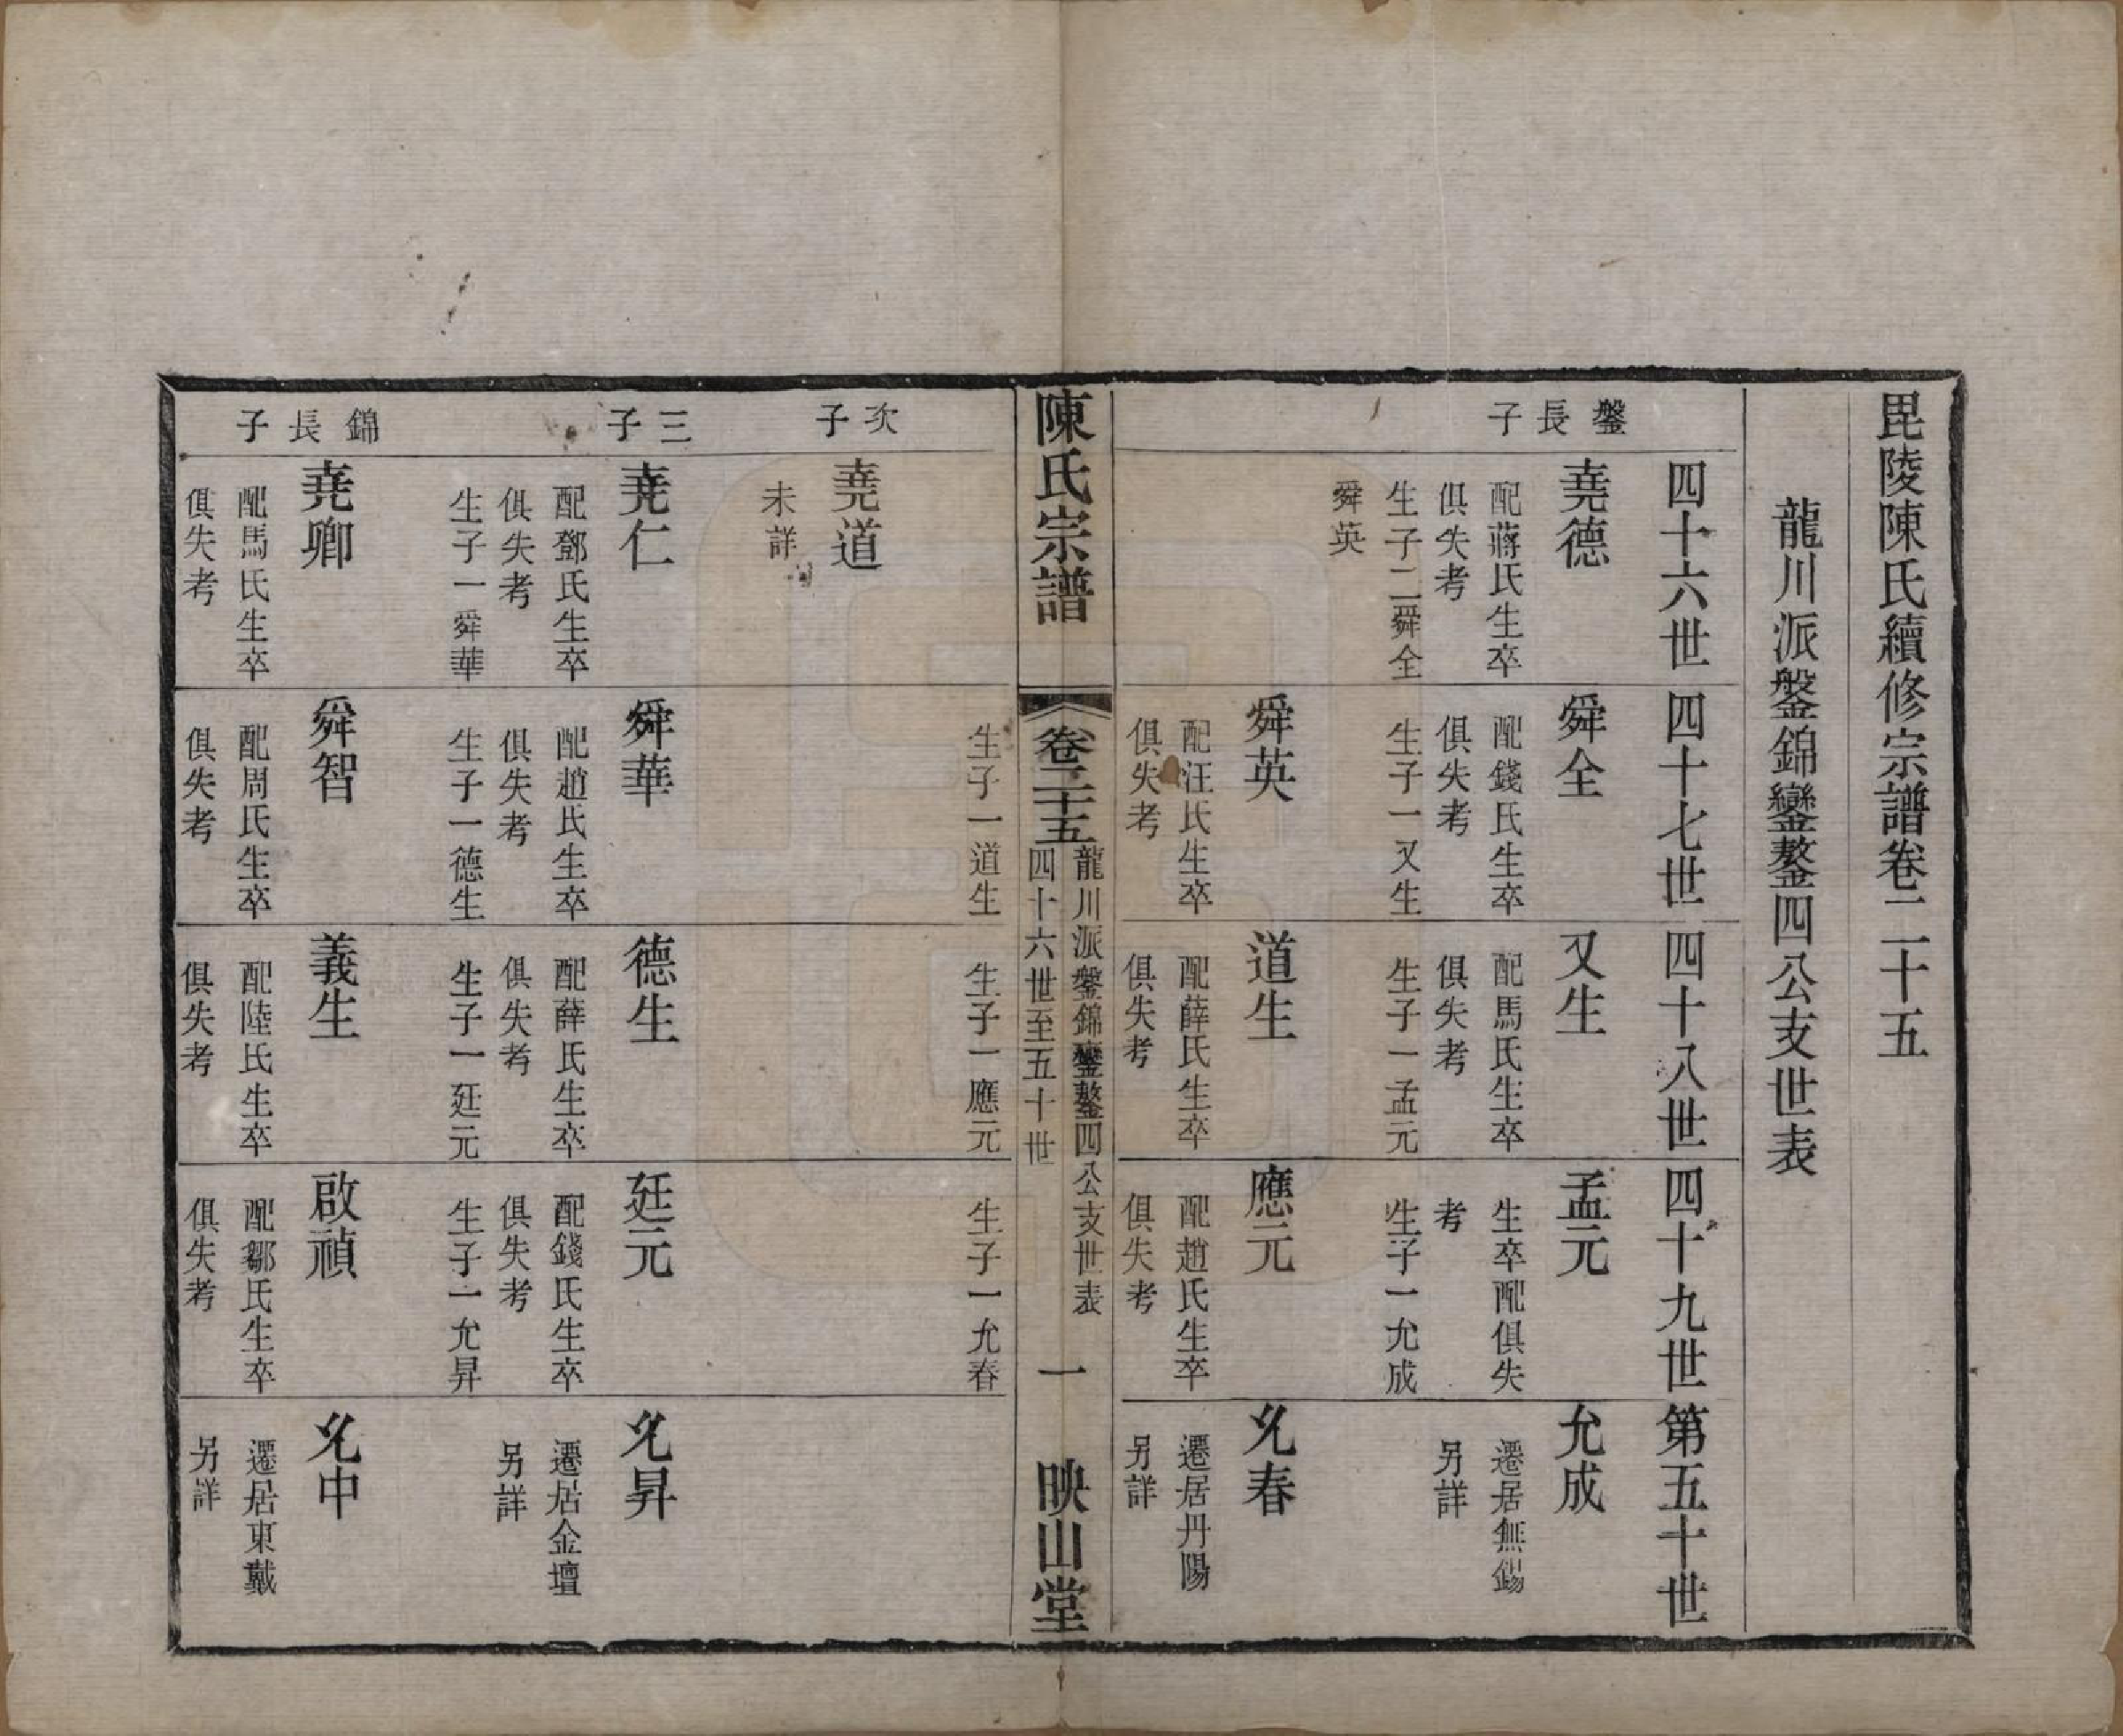 毘陵陳氏續修宗譜卷二十五
龍川派鎜錦鑾鏊四公支世表
四十六世
四十七世
四十八世
四十九世
第五十世
鎜長子
堯德
配蔣氏生卒
俱失考
生子二舜全
舜英
舜全
配錢氏生卒
俱失考
生子一又生
又生
配馬氏生卒
俱失考
生子一孟元
孟元
生卒配俱失
考
生子一允成
允成
遷居無錫
另詳
舜英
配汪氏生卒
俱失考
道生
配薛氏生卒
俱失考
應元
配趙氏生卒
俱失考
允春
遷居丹陽
另詳
陳氏宗譜
卷二十五
龍川派鎜錦鑾鏊四公支世表
四十六世至五十世
一
映山堂
生子一道生
生子一應元
生子一允春
次子
堯道
未詳
三子
堯仁
配鄧氏生卒
俱失考
生子一舜華
舜華
配趙氏生卒
俱失考
生子一德生
德生
配薛氏生卒
俱失考
生子一廷元
廷元
配錢氏生卒
俱失考
生子一允昇
允昇
遷居金壇
另詳
錦長子
堯卿
配馬氏生卒
俱失考
舜智
配周氏生卒
俱失考
義生
配陸氏生卒
俱失考
啟禎
配鄒氏生卒
俱失考
允中
遷居東戴
另詳